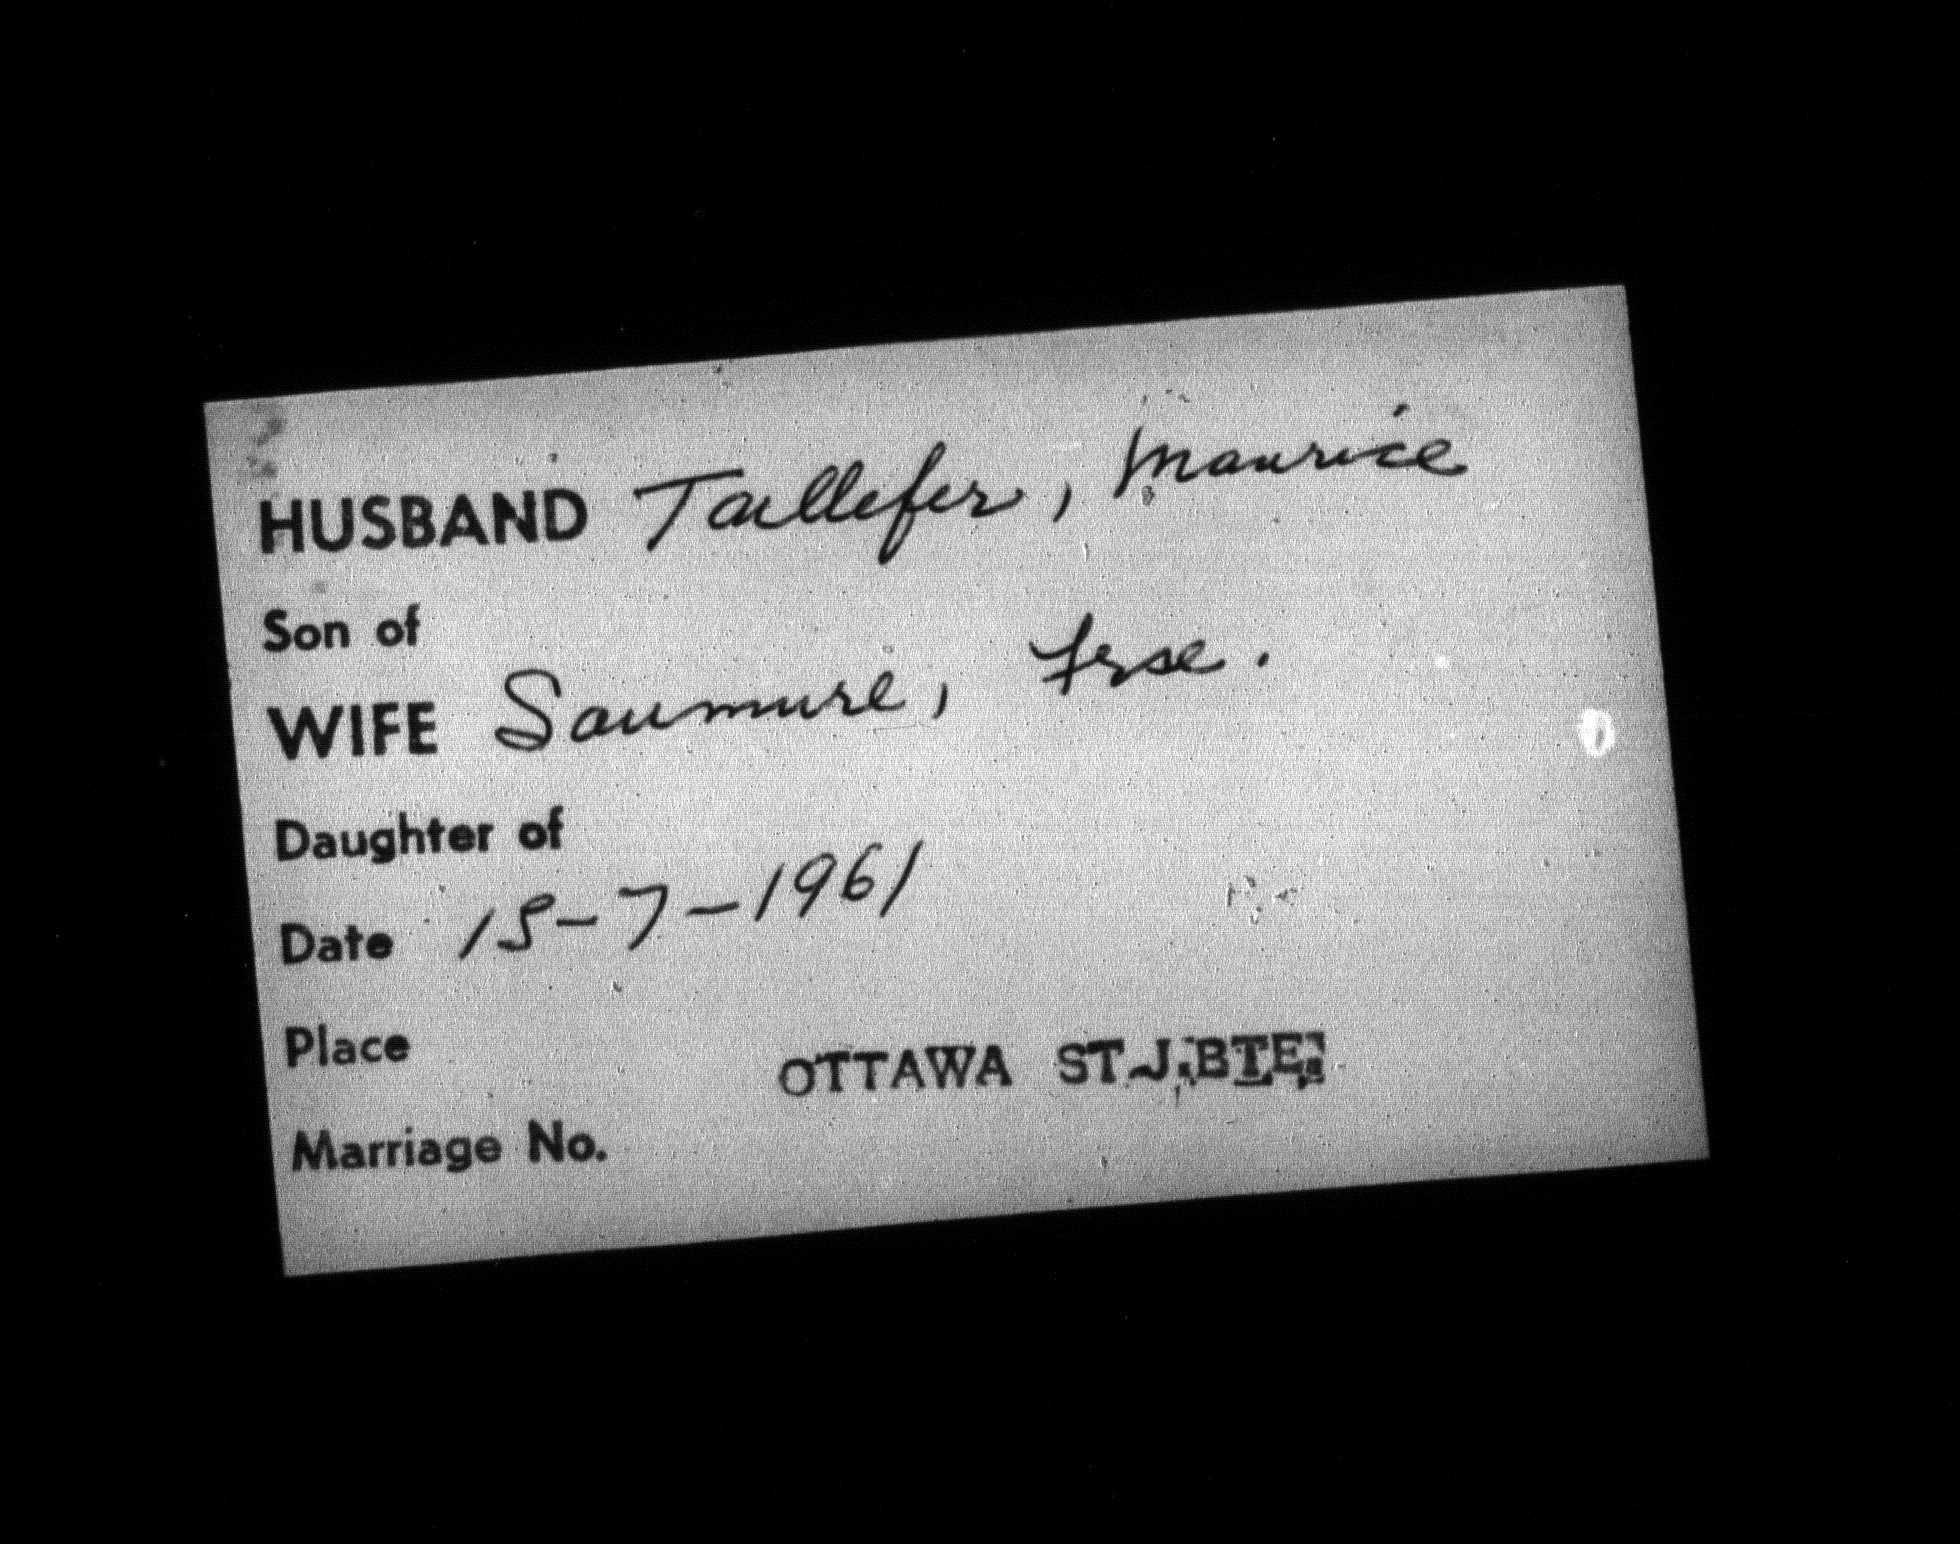 HUSBAND Taillefer, Maurice
Son of
WIFE Saumure, Frse.
Daughter of
Date 15-7-1961
Place
OTTAWA ST.J.BTE.
Marriage No.